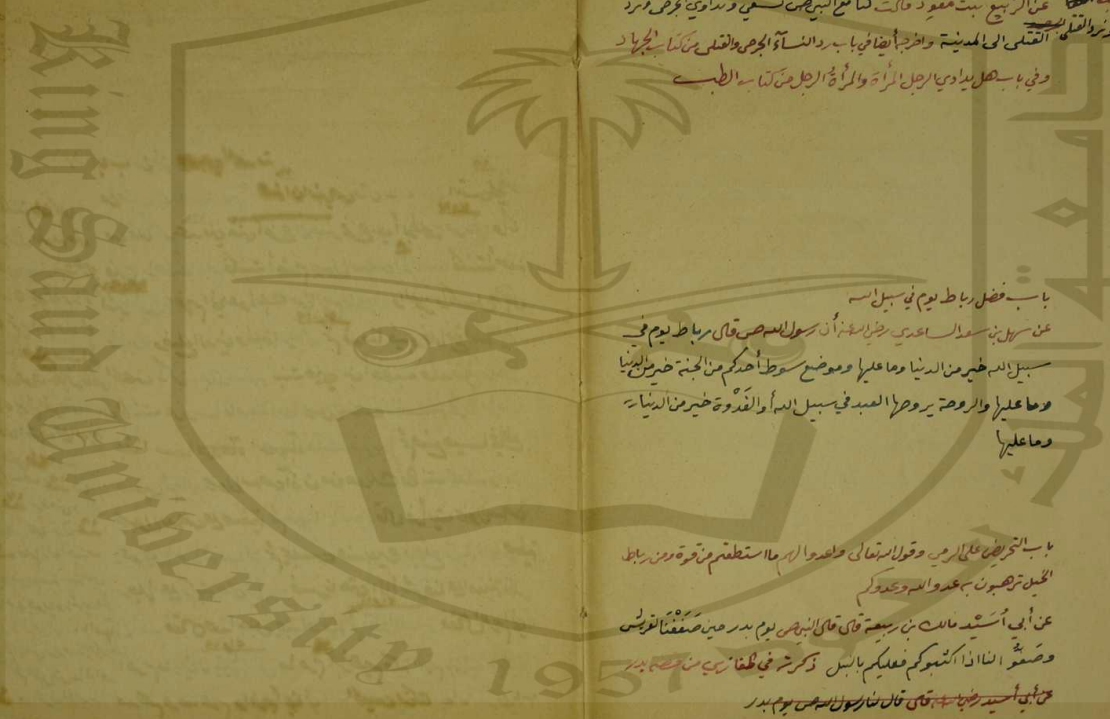 عن الربيع بنت معوذ قالت كنا مع النبي ص نسقي ونداوي الجرحى ونرد
القتلى الى المدينة واخرجه أيضا في باب رد النسآء الجرحى والقتلى من كتاب الجهاد
وفي باب هل يداوي الرجل المرأة والمرأةُ الرجل من كتاب الطب
باب فضل رباط يوم في سبيل الله
عن سهل بن سعد الساعدي رضي الله عنه أن رسول الله ص قال رباط يوم في
سبيل الله خير من الدنيا وما عليها وموضع سوط أحدكم من الجنة خير من الدنيا
وما عليها والروحة يروحها العبد في سبيل الله أو الغَدْوة خير من الدنيا
وما عليها
باب التحريض على الرمي وقول الله تعالى واعدوا لهم ما استطعتم من قوة ومن رباط
الخيل ترهبون به عدو الله وعدوكم
عن أبي أُسَيْد مالك بن ربيعة قال قال النبي ص يوم بدر حين صَفَفْنَا لقريش
وصَفُّوا لنا اذا اكثبوكم فعليكم بالنبل ذكرته في المغازي من قصة بدر
عن أبي أسيد رضي الله قال قال لنا رسول الله ص يوم بدر
King Saud University
1957
جامعة الملك